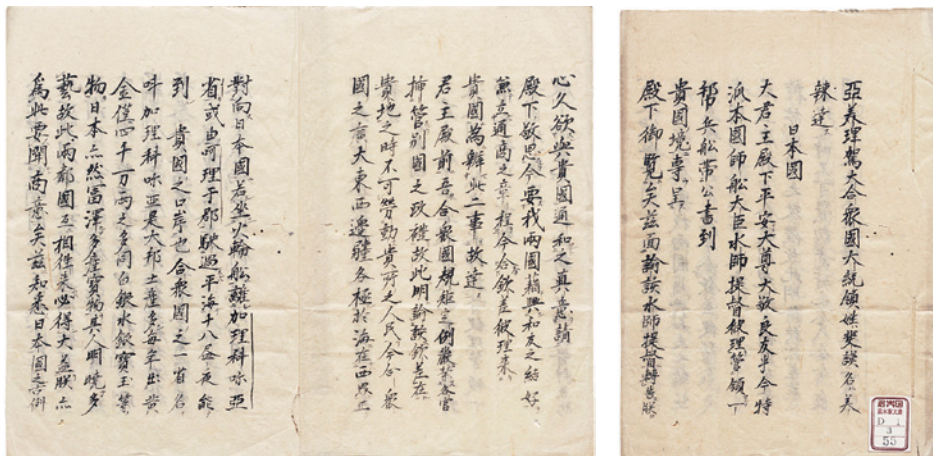 亞美理駕大合衆國大統領姓斐謨名美
辣達
日本國
大君主殿下平安大尊大敬良友乎今特
派本國師船大臣水師提督彼理管領一
幇兵船帶公書到
貴國境專呈
殿下御覧矣茲面諭該水師提督轉告朕
心久欲與貴國通和之真意萌
殿下敬思今要我兩國藉興和友之結好
無立通商之章程今命欽差彼理来
貴國為辦此二事故達
君主殿前吾合衆國規矩定例嚴禁各官
挿管別國之政故此明諭該欽差在
貴地之時不可勞動貴方之人民今合衆
國之京大東西邊疆各極於海在西界正
對向日本國若坐火輪船離加理科呋亞
省或由何理于郡駛過平海十八昼夜能
到 貴國之口岸也合衆國之一省名
呌加理科呋亞是大邦土產多每年出黄
金僅四千万両之多同白銀水銀寶玉等
物日本亦然富澤多產寳物其人明暁多
藝故此兩都國互相往来必得大益朕亦
為此要聞尚意矣茲知悉日本國之古例
D 1
3
55